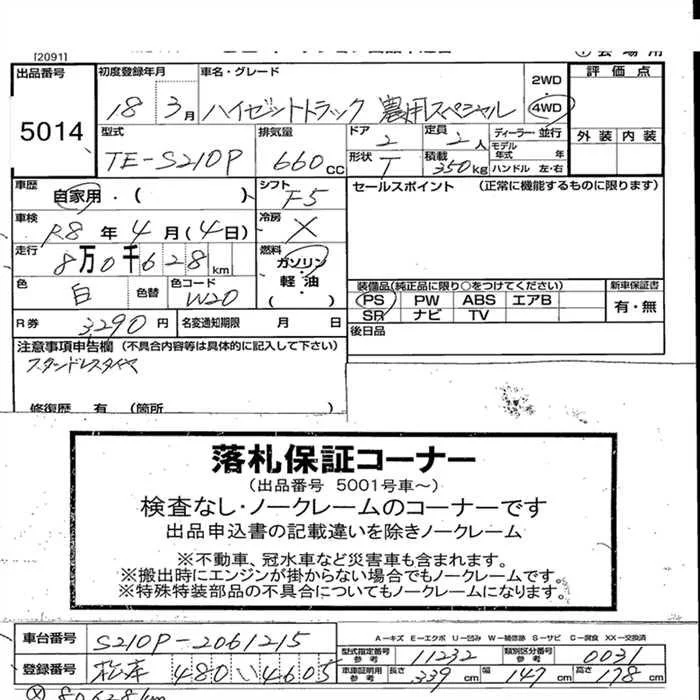 [2091]
出品番号
5014
初度登録年月
18 3月
車名・グレード
ハイゼットトラック 農用スペシャル
2WD
4WD
評価点
外装 内装
型式
TE-S210P
排気量
660 CC
ドア
2
定員
2人
形状
T
積載
350kg
ディーラー・並行
モデル年式 年
ハンドル 左・右
車歴
自家用・( )
シフト
F5
セールスポイント (正常に機能するものに限ります)
車検
R8年4月(4日)
冷房
X
走行
8万0千628km
燃料
ガソリン・
軽油・
( )
色
白
色替
色コード
W20
装備品(純正品に限り○をつけてください)
PS PW ABS エアB
SR ナビ TV
新車保証書
有・無
R券
3,290円
名変通知期限 月 日
後日品
注意事項申告欄 (不具合内容等は具体的に記入して下さい)
スタンドレスタイヤ
修復歴 有 (箇所 )
落札保証コーナー
(出品番号 5001号車~)
検査なし・ノークレームのコーナーです
出品申込書の記載違いを除きノークレーム
※不動車、冠水車など災害車も含まれます。
※搬出時にエンジンが掛からない場合でもノークレームです。
※特殊特装部品の不具合についてもノークレームになります。
車台番号
S210P-2061215
A-キズ E-エクボ U-凹み W-補修跡 S-サビ C-腐食 XX-交換済
型式指定番号
参考
11232
類別区分番号
参考
0031
登録番号
松本 480 い 4605
車庫証明用
参考
長さ
339cm
幅
147cm
高さ
178cm
80628km